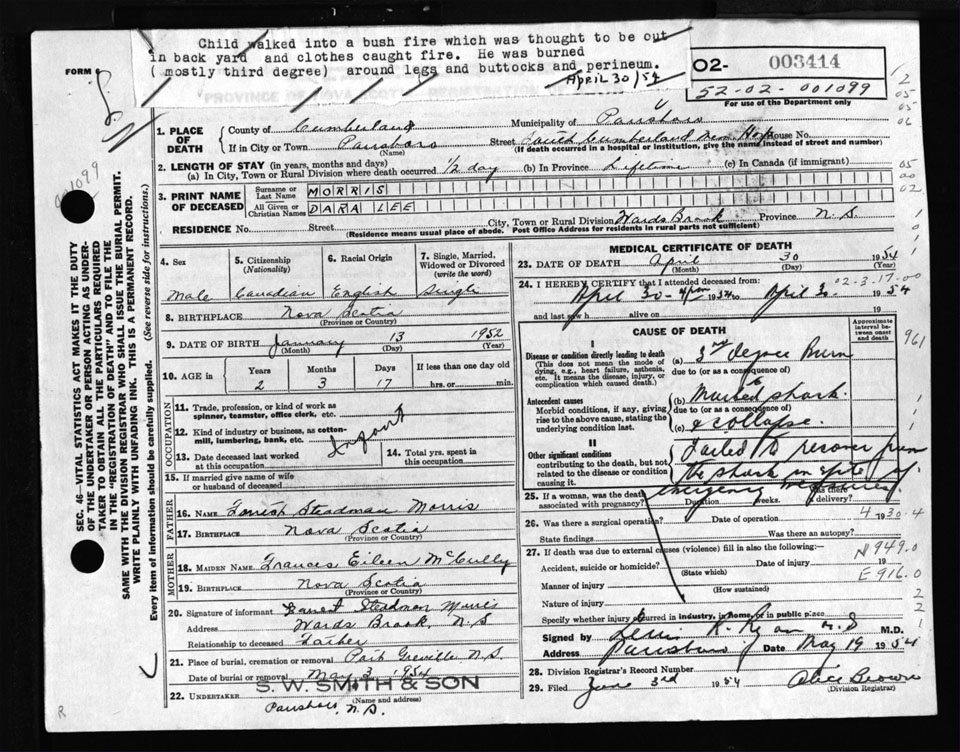 Child walked into a bush fire which was thought to be out
in back yard and clothes caught fire. He was burned
( mostly third degree) around legs and buttocks and perineum.
April 30/54
FORM
O2- 003414
52-02-001099
For use of the Department only
PROVINCE OF NOVA SCOTIA
1. PLACE OF DEATH
County of Cumberland Municipality of Parrsboro
If in City or Town Parrsboro (Name) Street South Cumberland Mem. Hosp House No.
(If death occurred in a hospital or institution, give the name instead of street and number)
2. LENGTH OF STAY (in years, months and days)
(a) In City, Town or Rural Division where death occurred 1/2 day (b) In Province Lifetime (c) In Canada (if immigrant)
3. PRINT NAME OF DECEASED
Surname or Last Name MORRIS
All Given or Christian Names DARA LEE
RESIDENCE No. Street City, Town or Rural Division Wards Brook Province N.S.
(Residence means usual place of abode. Post Office Address for residents in rural parts not sufficient)
4. Sex
Male
5. Citizenship (Nationality)
Canadian
6. Racial Origin
English
7. Single, Married, Widowed or Divorced (write the word)
Single
8. BIRTHPLACE Nova Scotia
(Province or Country)
9. DATE OF BIRTH January 13 1952
(Month) (Day) (Year)
10. AGE in
Years Months Days If less than one day old
2 3 17 hrs. or min.
OCCUPATION
11. Trade, profession, or kind of work as spinner, teamster, office clerk, etc.
12. Kind of industry or business, as cotton-mill, lumbering, bank, etc.
Infant
13. Date deceased last worked at this occupation
14. Total yrs. spent in this occupation
15. If married give name of wife or husband of deceased
FATHER
16. Name Forrest Steadman Morris
17. Birthplace Nova Scotia
(Province or Country)
MOTHER
18. MAIDEN NAME Frances Eileen McCully
19. BIRTHPLACE Nova Scotia
(Province or Country)
20. Signature of informant Forrest Steadman Morris
Address Wards Brook, N.S
Relationship to deceased Father
21. Place of burial, cremation or removal Port Greville N.S.
Date of burial or removal May 3 1954
22. UNDERTAKER S. W. SMITH & SON
(Name and address)
Parrsboro, N.S.
MEDICAL CERTIFICATE OF DEATH
23. DATE OF DEATH April 30 1954
(Month) (Day) (Year)
02-3.17.00
24. I HEREBY CERTIFY that I attended deceased from:
April 30 - 4pm 1954 to April 30 1954
and last saw h alive on 19
CAUSE OF DEATH
Approximate interval between onset and death
I
Disease or condition directly leading to death
(This does not mean the mode of dying, e.g., heart failure, asthenia, etc. It means the disease, injury, or complication which caused death.)
(a) 3rd degree Burn
due to (or as a consequence of)
Antecedent causes
Morbid conditions, if any, giving rise to the above cause, stating the underlying condition last.
(b) Marked shock
due to (or as a consequence of)
(c) & collapse.
II
Other significant conditions
contributing to the death, but not related to the disease or condition causing it.
Failed to recover from
the shock in spite of
emergency measures.
25. If a woman, was the death associated with pregnancy? Duration weeks. Was there delivery?
26. Was there a surgical operation? Date of operation 4 1930.4
State findings Was there an autopsy?
27. If death was due to external causes (violence) fill in also the following:-
N949.0
Accident, suicide or homicide? (State which) Date of injury 19
E916.0
Manner of injury (How sustained)
Nature of injury
Specify whether injury occurred in industry, in home, or in public place
Signed by K. Ryan M.D M.D.
Address Parrsboro Date May 19 1954
28. Division Registrar's Record Number
29. Filed June 3rd 1954 Alice Brown
(Division Registrar)
SEC. 46—VITAL STATISTICS ACT MAKES IT THE DUTY
OF THE UNDERTAKER OR PERSON ACTING AS UNDER-
TAKER TO OBTAIN ALL THE PARTICULARS REQUIRED
IN THE "REGISTRATION OF DEATH" AND TO FILE THE
SAME WITH THE DIVISION REGISTRAR WHO SHALL ISSUE THE BURIAL PERMIT.
WRITE PLAINLY WITH UNFADING INK. THIS IS A PERMANENT RECORD.
Every item of information should be carefully supplied. (See reverse side for instructions.)
001099
961
R